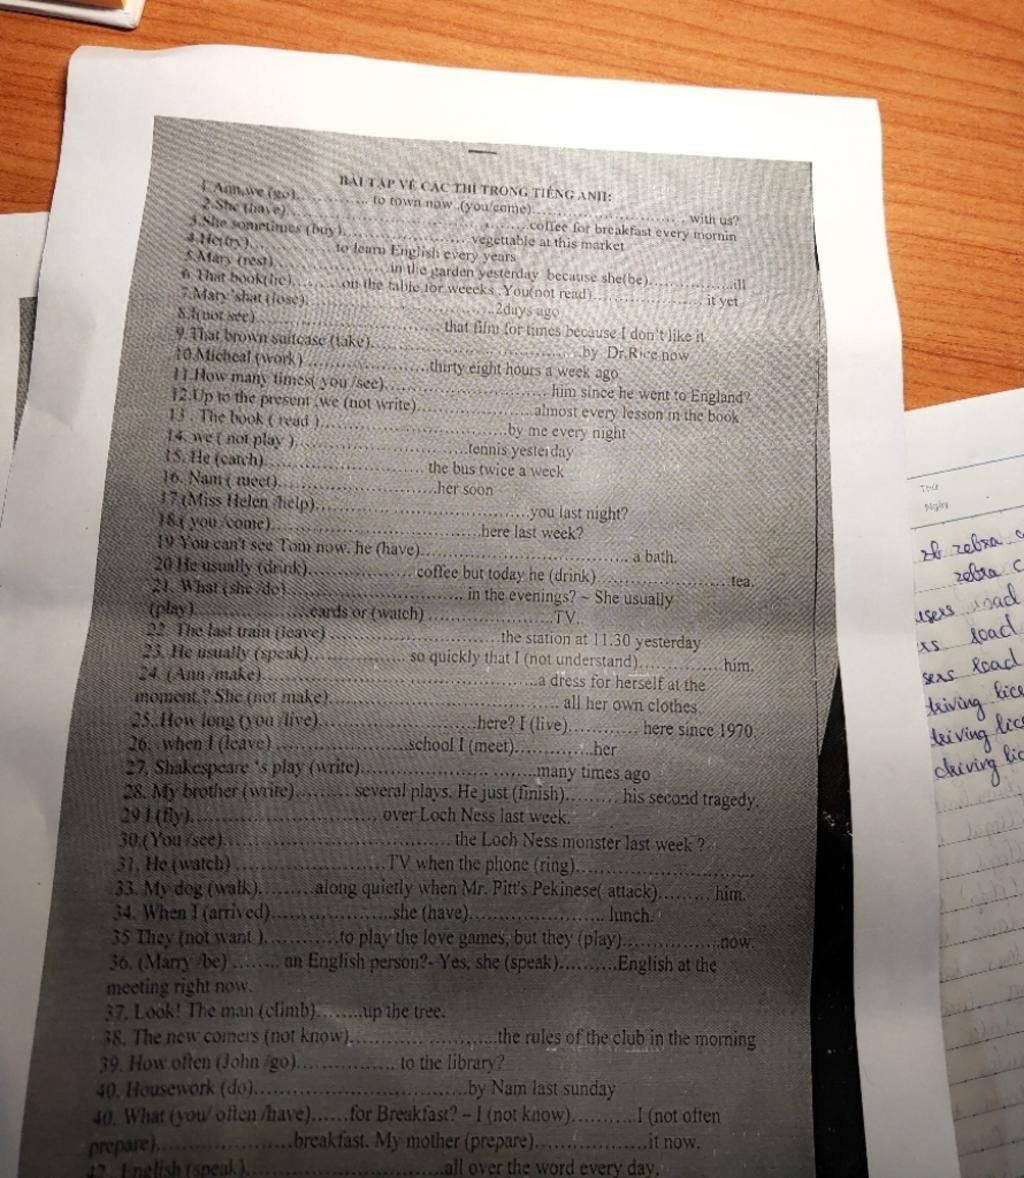 BÀI TẬP VỀ CÁC THÌ TRONG TIẾNG ANH:
1.Ann,we (go)..................... to town now .(you/come)................................... with us?
2.She (have)..................................................coffee for breakfast every mornin
3.She sometimes (buy).............................. vegettable at this market
4.He(try)...................to learn English every years
5.Mary (rest)..........................in the garden yesterday because she(be)..................ill
6. That book(be)............on the table for weecks .You(not read)........................ it yet
7.Mary 'shat (lose)........................................2days ago
8.I(not see)........................................ that film for times because I don't like it
9. That brown suitcase (take)...............................................by Dr.Rice now
10.Micheal (work)............................thirty eight hours a week ago
11.How many times( you /see).................................... him since he went to England?
12.Up to the present ,we (not write)............................almost every lesson in the book
13 . The book ( read )..........................................by me every night
14. we ( not play )......................................tennis yesterday
15. He (catch)................................... the bus twice a week
16. Nam ( meet)...................................her soon
17.(Miss Helen /help)................................................you last night?
18.( you /come)..............................................here last week?
19 You can't see Tom now. he (have)............................................ a bath.
20 He usually (drink)....................... coffee but today he (drink)............................tea.
21. What (she /do)...................................... in the evenings? ~ She usually
(play).........................cards or (watch) ..........................TV.
22. The last train (leave)....................................the station at 11.30 yesterday
23. He usually (speak)..................... so quickly that I (not understand)................. him.
24. (Ann /make)..........................................................a dress for herself at the
moment.? She (not make)................................................ all her own clothes
25..How long (you /live)................................here? I (live)............. here since 1970.
26. when I (leave) ...........................school I (meet).............her
27, Shakespeare 's play (write)...................................many times ago
28. My brother (write)......... several plays. He just (finish)......... his second tragedy.
29 I (fly)....................................... over Loch Ness last week.
30.(You /see)................................................ the Loch Ness monster last week ?
31. He (watch) ...............................TV when the phone (ring)....................................
33. My dog (walk).........along quietly when Mr. Pitt's Pekinese( attack)......... him.
34. When I (arrived).........................she (have)............................ lunch.
35 They (not want )...............to play the love games, but they (play)....................now.
36. (Marry /be) ........ an English person?- Yes, she (speak)..........English at the
meeting right now.
37. Look! The man (climb)........up the tree.
38. The new comers (not know)...............................the rules of the club in the morning
39. How often (John /go)..................... to the library?
40. Housework (do)............................................by Nam last sunday
40. What (you/ often /have)......for Breakfast? – I (not know)...........I (not often
prepare)...........................breakfast. My mother (prepare).......................it now.
42. English (speak)........................................all over the word every day.
Thứ
Ngày
zebra
zebra
users road
road
road
driving
driving
driving